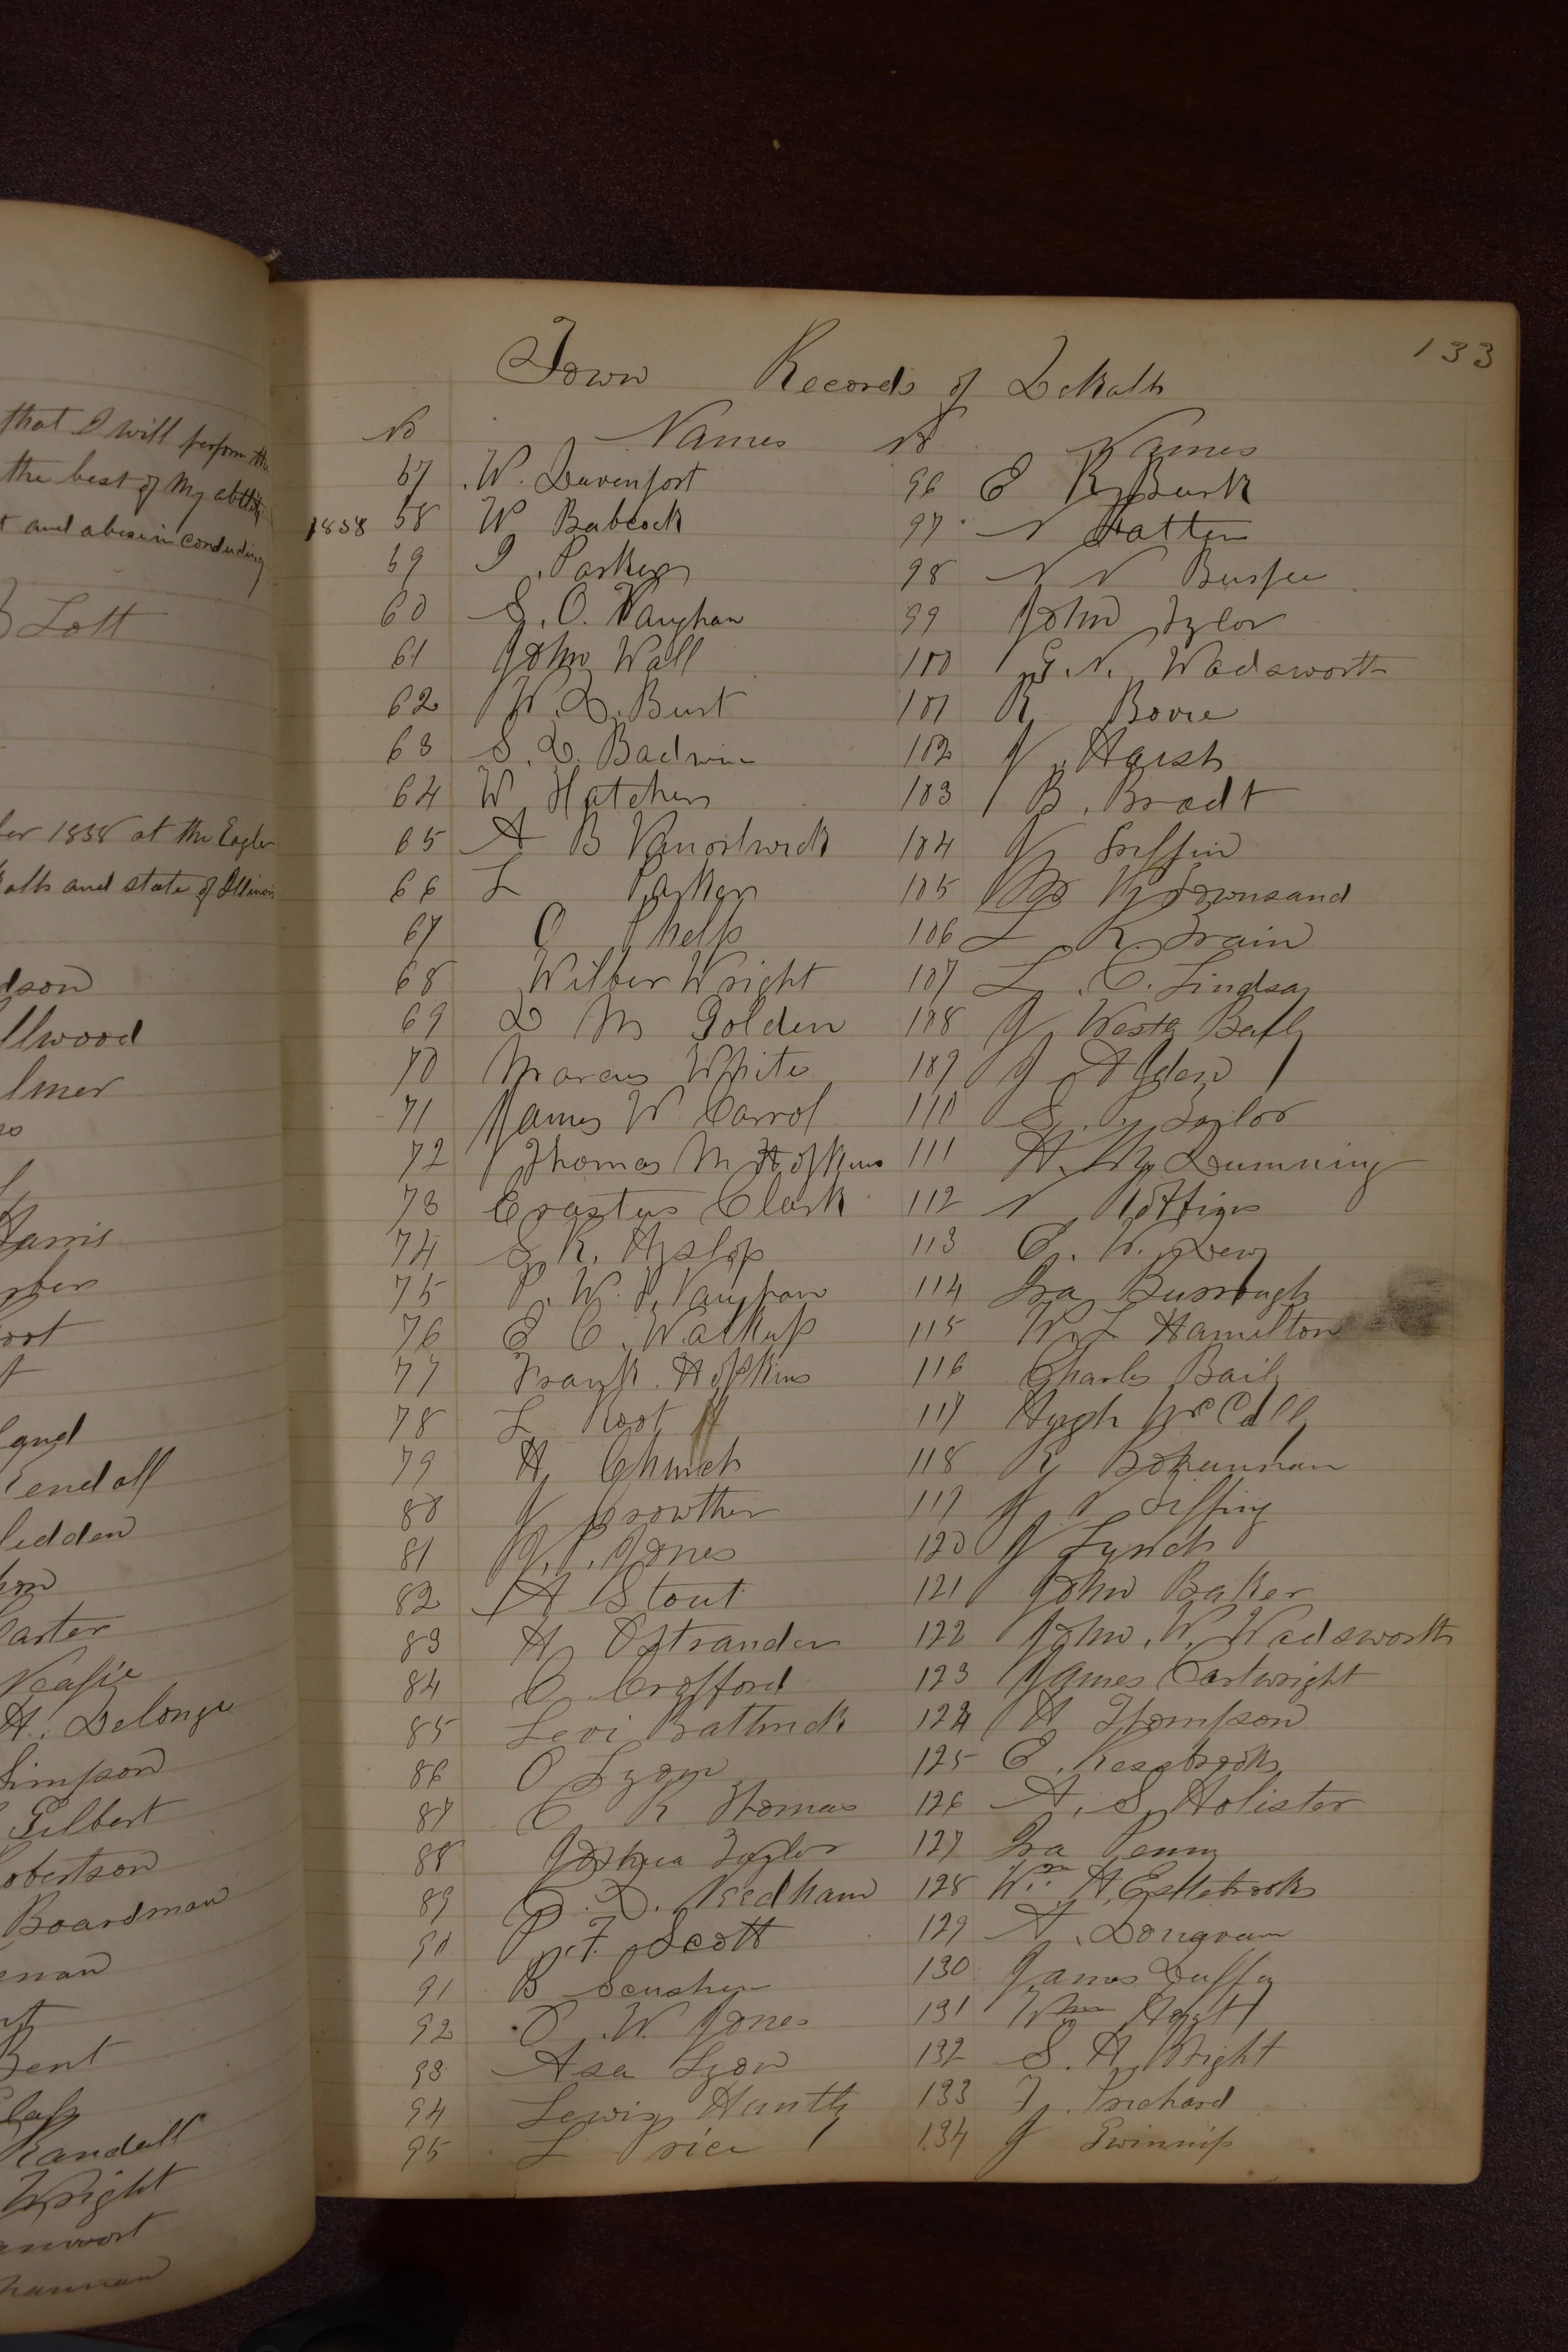 that I will perform the
the best of my ability
t and abuse in conducting
Lott
ber 1858 at the Eagle
Kalb and state of Illinois
dson
llwood
lmer
Harris
oot
land
Kendall
ledden
Carter
Veasie
H. Delonge
Simpson
Gilbert
obertson
Boardman
Bent
Randall
Wright
133
Town Records of DeKalb
No Names
57 W. Davenport
1858 58 W Babcock
59 I. Parker
60 S. O. Vaughan
61 John Wall
62 W. D. Burt
63 S. D. Badwin
64 W Hatcher
65 A B Vanostwick
66 L Parker
67 O Phelps
68 Wilber Wright
69 D M Golden
70 Marcus White
71 James W Carrol
72 Thomas M Hopkins
73 Erastus Clark
74 S. R. Hyslop
75 P. W. P. Vaughan
76 E C. Walkup
77 Frank Hopkins
78 L Root
79 H Church
80 J Crowther
81 J. P. Jones
82 A Stout
83 H Ostrander
84 C Crofford
85 Levi
86 O Lyon
87 C R Thomas
88 Joshua Taylor
89 D. Needham
90 P. F. Scott
91 B
92 O. W. Jones
93 Asa Lyon
94 Lewis Huntly
95 L Price
No Names
96 E R Burk
97 N Hatten
98 N N Burpee
99 John Tylor
100 G. N. Wadsworth
101 R Bovie
102 J Harsh
103 B. Bradt
104 J Griffin
105 Townsand
106 L R. Train
107 L. C. Lindsay
108 J Westly Baily
109 J Alden
110 S. P. Taylor
111 H. M. Dumming
112 N
113 E. W. Dewy
114 Ira Burrough
115 W L Hamilton
116 Charles Baily
117 Hugh McCall
118 R Bohannan
119 J V Tiffiny
120 J Lynch
121 John Baker
122 John. W. Wadsworth
123 James Cartwright
124 H Thompson
125 E.
126 A. S. Holister
127 Ira Penny
128 Wm H. Estlebrooks
129 A. Dongvan
130 James Duffy
131 Wm Hoyt
132 S. H. Bright
133 J. Prichard
134 J Gwinnip